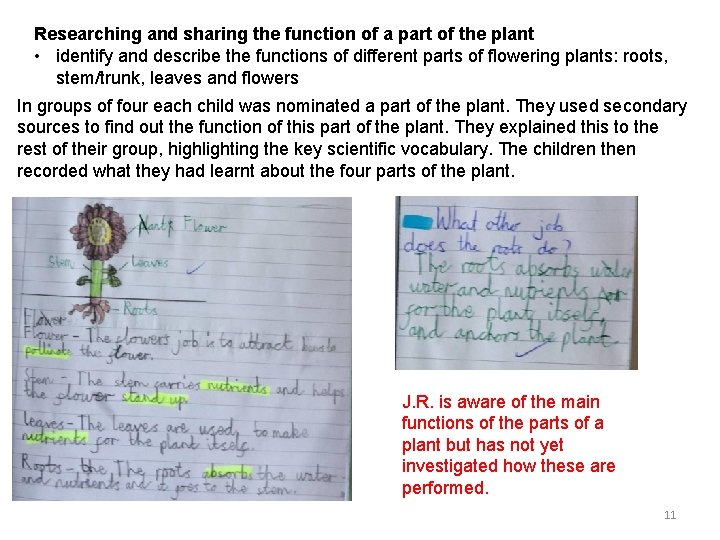 Researching and sharing the function of a part of the plant
• identify and describe the functions of different parts of flowering plants: roots,
stem/trunk, leaves and flowers
In groups of four each child was nominated a part of the plant. They used secondary
sources to find out the function of this part of the plant. They explained this to the
rest of their group, highlighting the key scientific vocabulary. The children then
recorded what they had learnt about the four parts of the plant.
Flower
Stem
Leaves
Roots
Flower-
Flower - The flowers job is to attract to
pollinate the flower.
Stem - The stem carries nutrients and helps
the flower stand up.
Leaves - The leaves are used to make
nutrients for the plant itself.
Roots - the The roots absorbs the water
and nutrients and it goes to the stem.
What other job
does the roots do?
The roots absorbs water
water and nutrients for
for the plant itself,
and anchors the plant.
J.R. is aware of the main
functions of the parts of a
plant but has not yet
investigated how these are
performed.
11